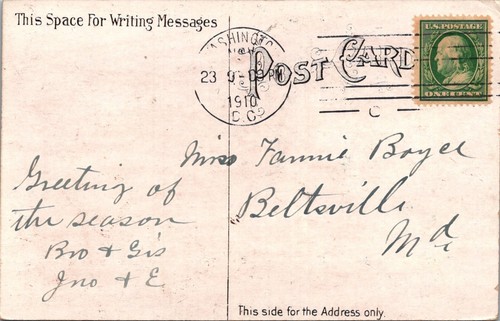 This Space For Writing Messages
WASHINGTON
NOV
23 9-PM
1910
D.C.
POST CARD
U.S. POSTAGE
ONE CENT
C
Miss Fannie Boyce
Beltsville
Md
Greeting of
the season
Bro & Sis
Jno & E
This side for the Address only.